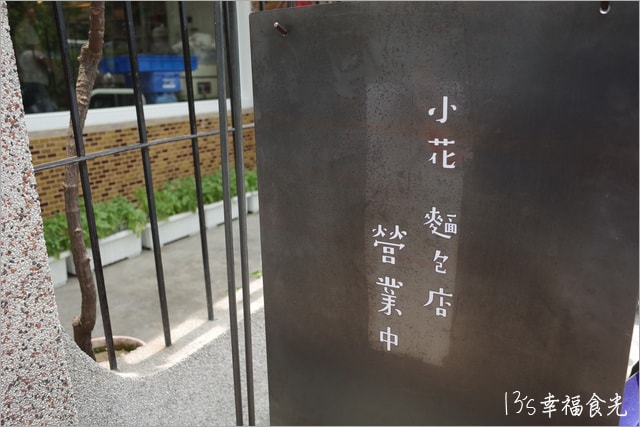 小花 麵包店
營業中
13's幸福食光